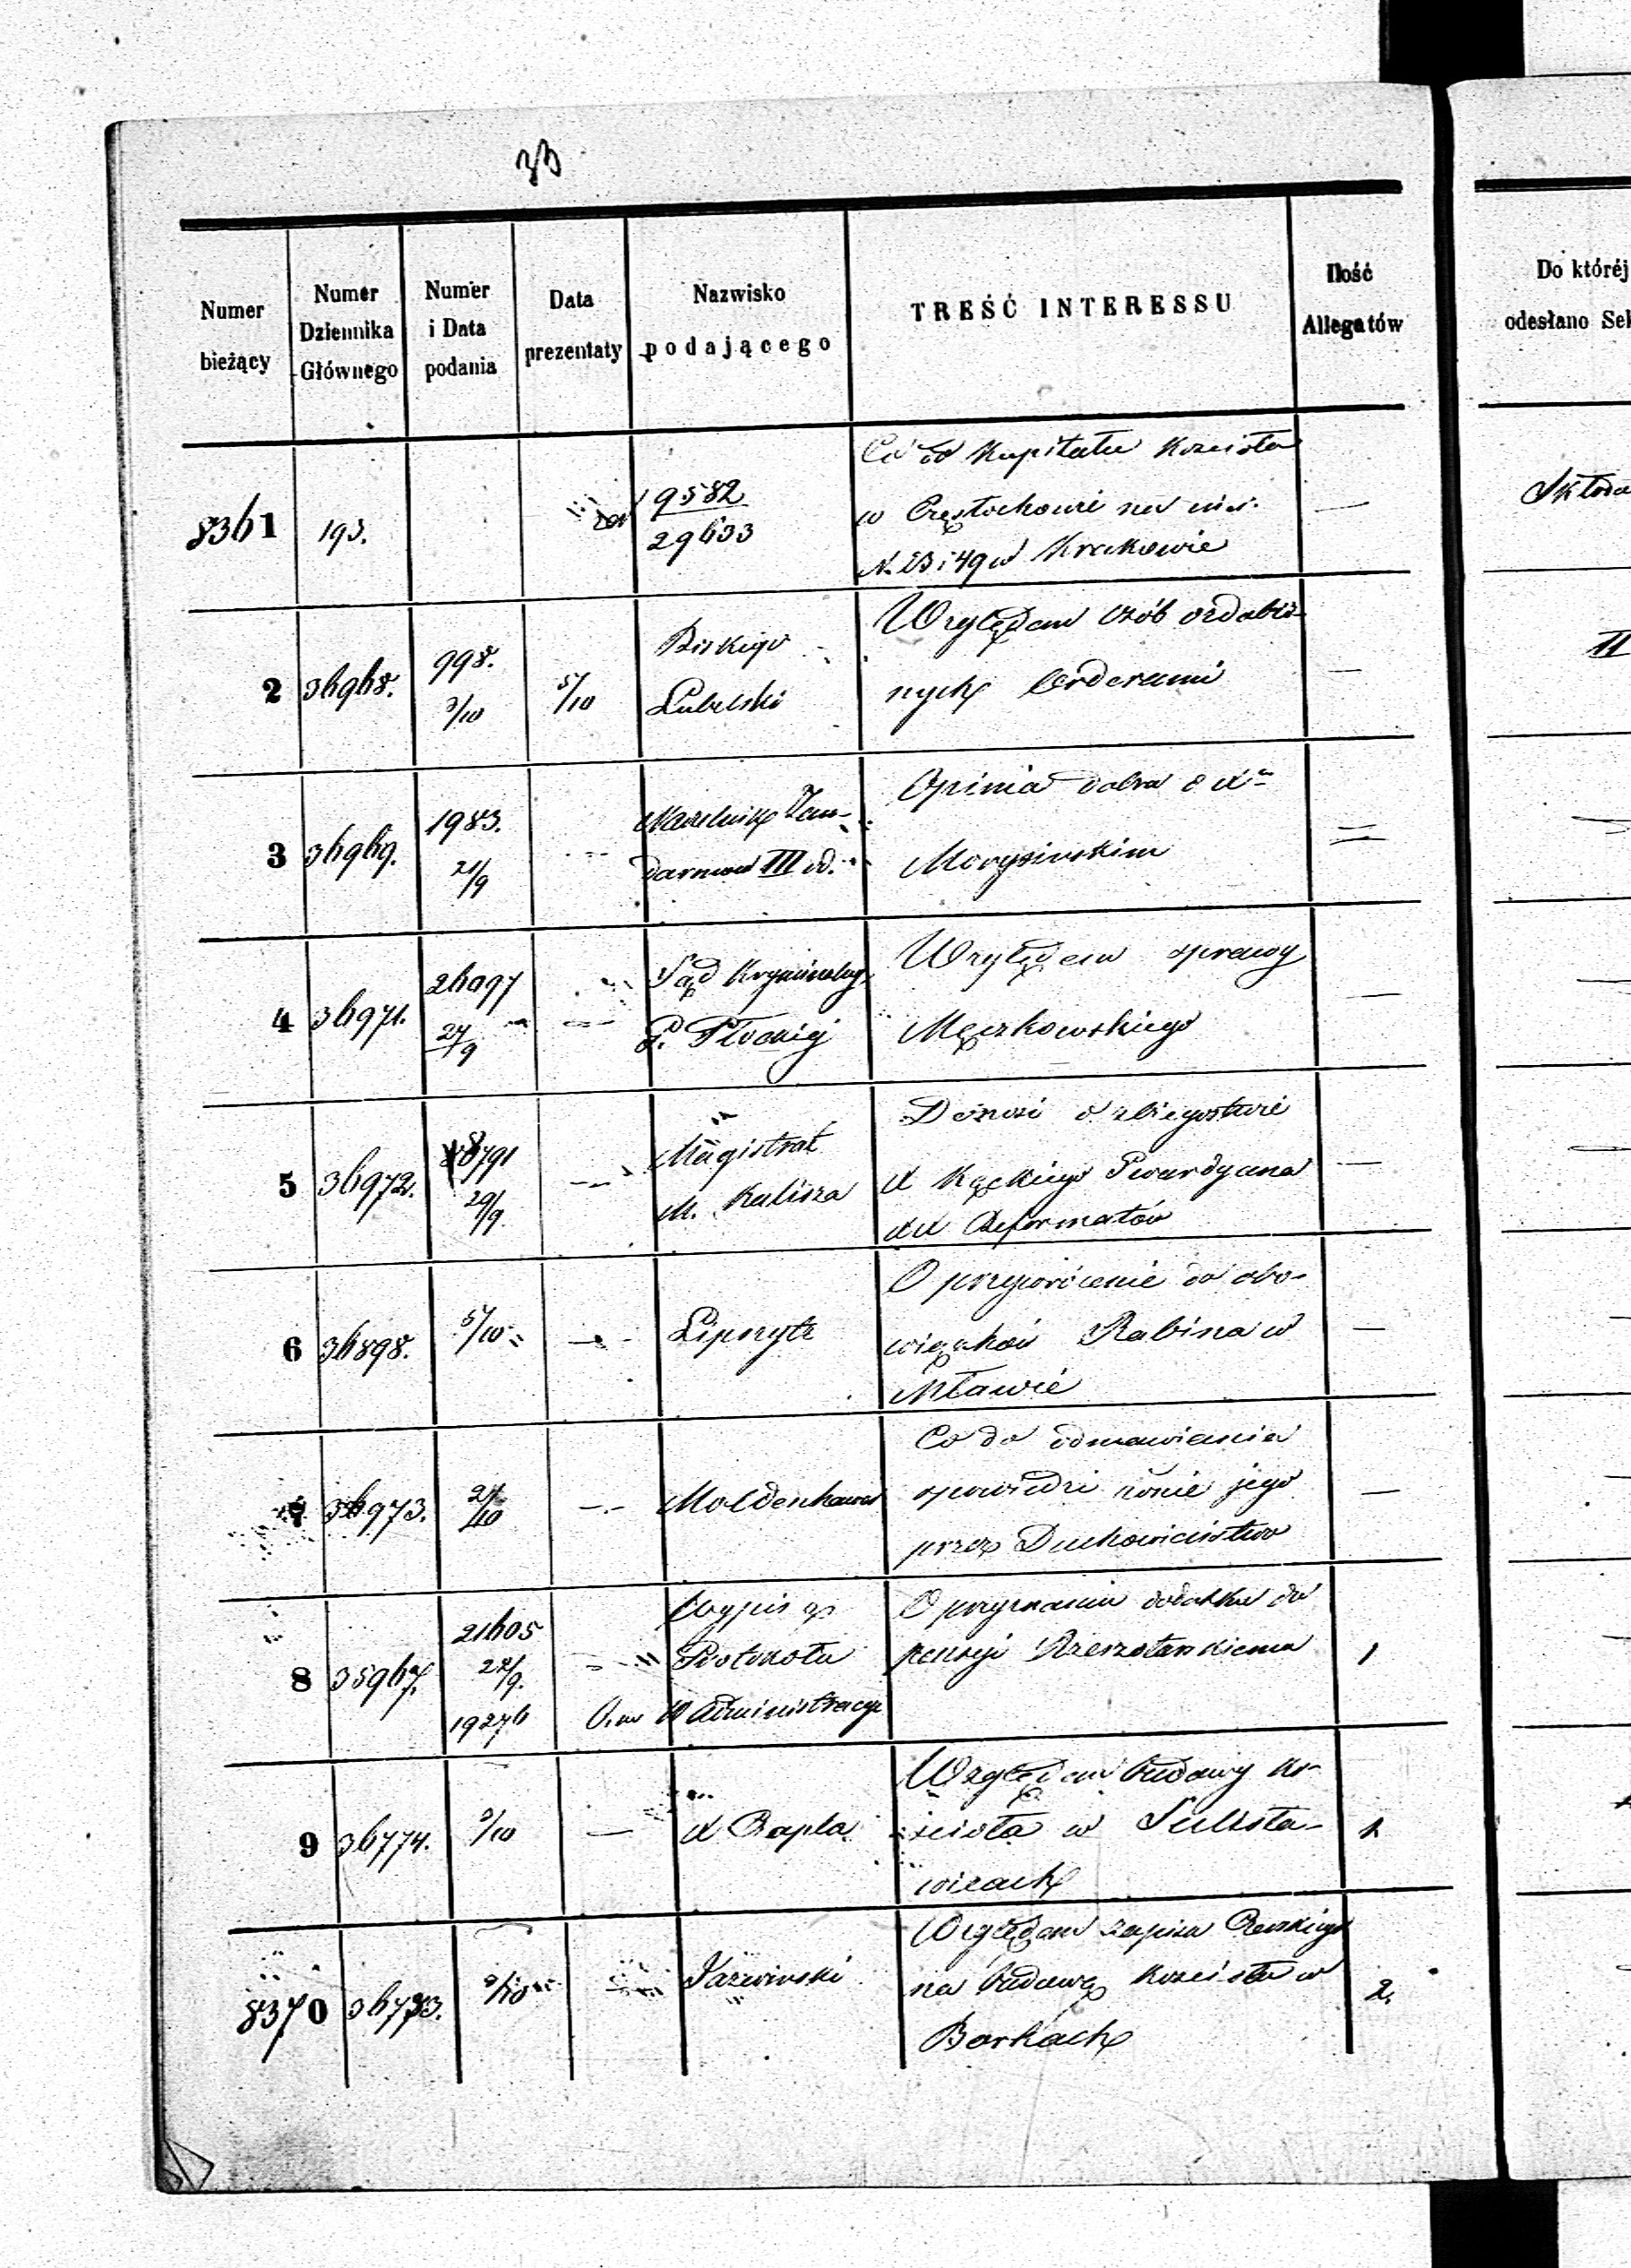 Numer bieżący
Numer Dziennika Głównego
Numer i Data podania
Data prezentaty
Nazwisko podającego
TREŚĆ INTERESSU
Ilość Allegatów
Do któréj
odesłano Sek
8361
193.
9582
29633
Co do Kapitału Kościoła
w Częstochowie na
N. 23 i 49 w Krakowie
—
2
36968.
998.
3/10
5/10
Biskup
Lubelski
Względem osób ozdobio-
nych Orderami
—
II
3
36969.
1983.
21/9
Naczelnik Żan-
darmów III od.
Opinia dobra o X
Morysińskim
4
36971.
26097
27/9
Sąd Kryminalny
G. Płockiéj
Względem sprawy
Męczkowskiego
—
5
36972.
8791
29/9
Magistrat
M. Kalisza
Donosi o zbiegostwie
X Kąckiego Gwardyana
XX Reformatów
—
6
36898.
5/10
Lipszytz
O przywrócenie do obo-
wiązków Rabina w
Mławie
—
7
36973.
2/10
Moldenhawer
Co do odmawiania
spowiedzi żonie jego
przez Duchowieństwo
—
8
35967.
21605
22/9.
19276
Wypis z
Protokołu
R. Administracyi
O przyznaniu dodatku do
pensyi Rzeszotarskiemu
1
9
36774.
2/10
X Rapla
Względem budowy ko-
ścioła w Sułosta-
wicach
1.
8370
36793.
2/10
Jaźwiński
Względem zapisu
na budowę Kościoła w
Borkach
2.